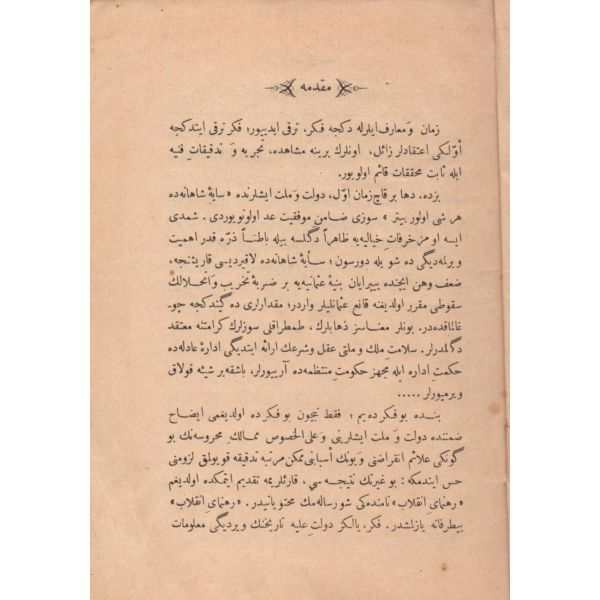 مقدمه
زمان وَ معارف ایلرله دکجه فکر، ترقی ایدییور؛ فکر ترقی ایتدکجه
أوّلکی اعتقادلر زائل، اونلرك یرینه مشاهده، تجربه وَ تدقیقات فنیه
ایله ثابت محققات قائم اولویور.
بزده، دها بر قاچ زمان اوّل، دولت وَ ملت ایشلرنده « سایهٔ شاهانه‌ده
هر شی اولور بیتر » سوزی ضامن موفقیت عد اولونویوردی . شمدی
ایسه او مز خرفاتِ خیالیه‌یه ظاهراً دگلسه بیله باطناً ذرّه قدر اهمیت
ویرلمه‌دیگی ده شو یله دورسون ؛ سایهٔ شاهانه‌ده لاقیردیسی قاریشنجه،
ضعف وهن ایچنده یپرایان بنیهٔ عثمانیه‌یه بر ضربهٔ تخریب وَ انحلالك
سقوطی مقرر اولدیغنه قانع عثمانلیلر واردر؛ مقدارلری ده گیتدکجه چو۔
غالماقده‌در. بونلر معناسز ذهابلرك، طمطراقلی سوزلرك کرامتنه معتقد
دگلدرلر. سلامتِ ملك و ملتی عقل وشرعك ارائه ایتدیگی ادارهٔ عادله‌ده
حکمتِ اداره ایله مجهز حکومتِ منتظمه‌ده آرییورلر، باشقه بر شیئه قولاق
ویرمیورلر .....
بنده بو فکرده‌یم ؛ فقط نیچون بو فکرده اولدیغمی ایضاح
ضمننده دولت وَ ملت ایشلرینی وَ علی الخصوص ممالكِ محروسه‌نك بو
گونکی علائم انقراضنی وَ بونك أسبابنی ممکن مرتبه تدقیقه قویولمق لزومنی
حس ایتدمکه : بو غیرتك نتیجه سی، قارئلریمه تقدیم ایتمکده اولدیغم
« رهنمای انقلاب » نامنده‌کی شو رساله‌مك محتویاتیدر. « رهنمای انقلاب »
بیطرفانه یازلمشدر. فکر، یالکز دولتِ علیه تاریخنك ویردیگی معلومات